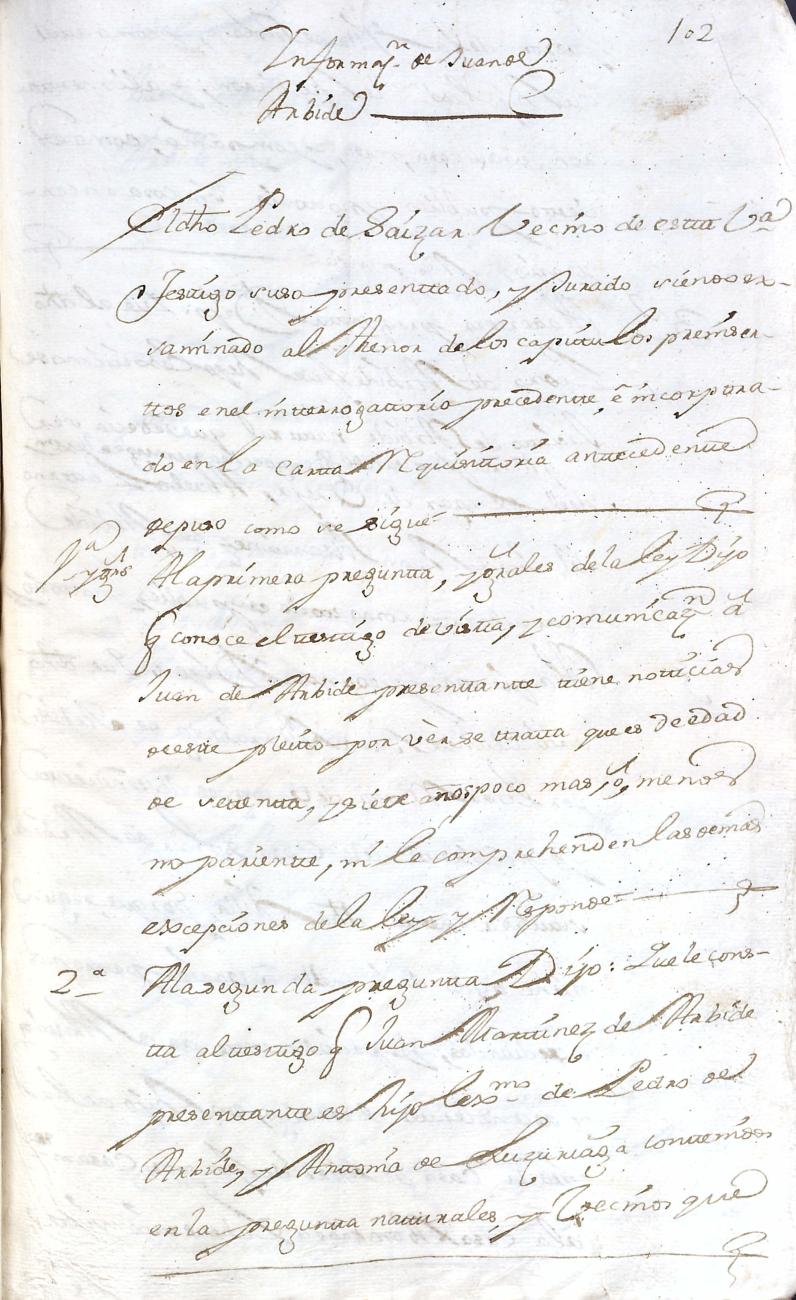 102
Informaᵒⁿ de Juan de
Arbide
El dho Pedro de Saizar Vecino de estta Vᵃ
Testtigo suso presenttado, y Jurado siendo ex-
saminado al Thenor de los capittulos preinser-
ttos en el intterrogattorio precedentte, è incorpora-
do en la Cartta Requisittoria anttecedentte
depuso como se sigue
1ᵃ y grˢ
A la primera preguntta, y grales de la ley Dijo
q conoce el testtigo de vistta, y comunicaᵒⁿ â
Juan de Arbide presenttantte ttiene notticias
de estte pleitto por vèr se ttratta que es de edad
de settentta, y siette años poco mas, ô, menos
no parientte, ni le comprehenden las demas
escepciones de la ley y Responde
2ᵃ
A la segunda preguntta Dijo: Que le cons-
tta al testtigo q Juan Marttinez de Arbide
presenttantte es hijo lexᵐᵒ de Pedro de
Arbide, y Anttonia de Luzuriaga conttenidos
en la preguntta natturales, y Vecinos que